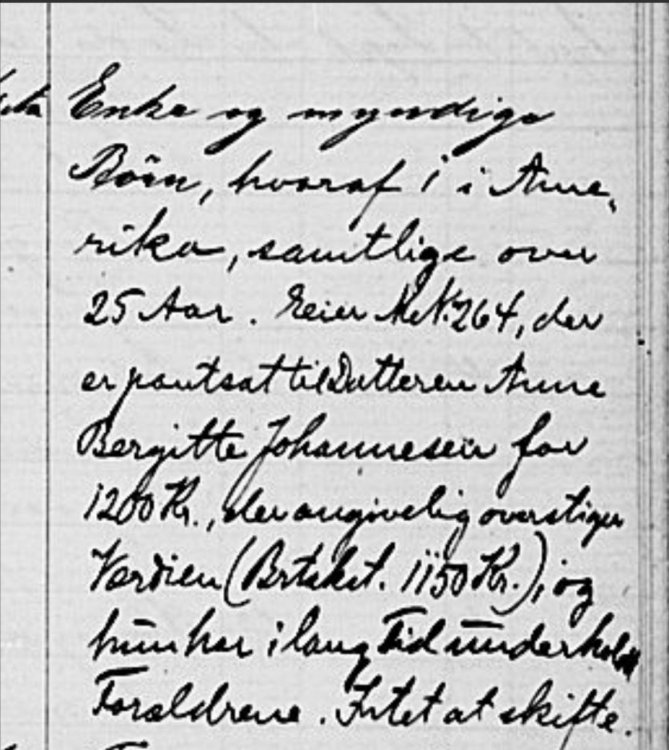 Enke og myndige
Börn, hvoraf 1 i Ame-
rika, samtlige over
25 Aar. Eier M.N. 264, der
er pantsat til Datteren Anne
Bergitte Johannesen for
1200 Kr., der angivelig overstiger
Værdien (Brtakst. 1150 Kr.); og
hun har i lang Tid underholdt
Forældrene. Intet at skifte.